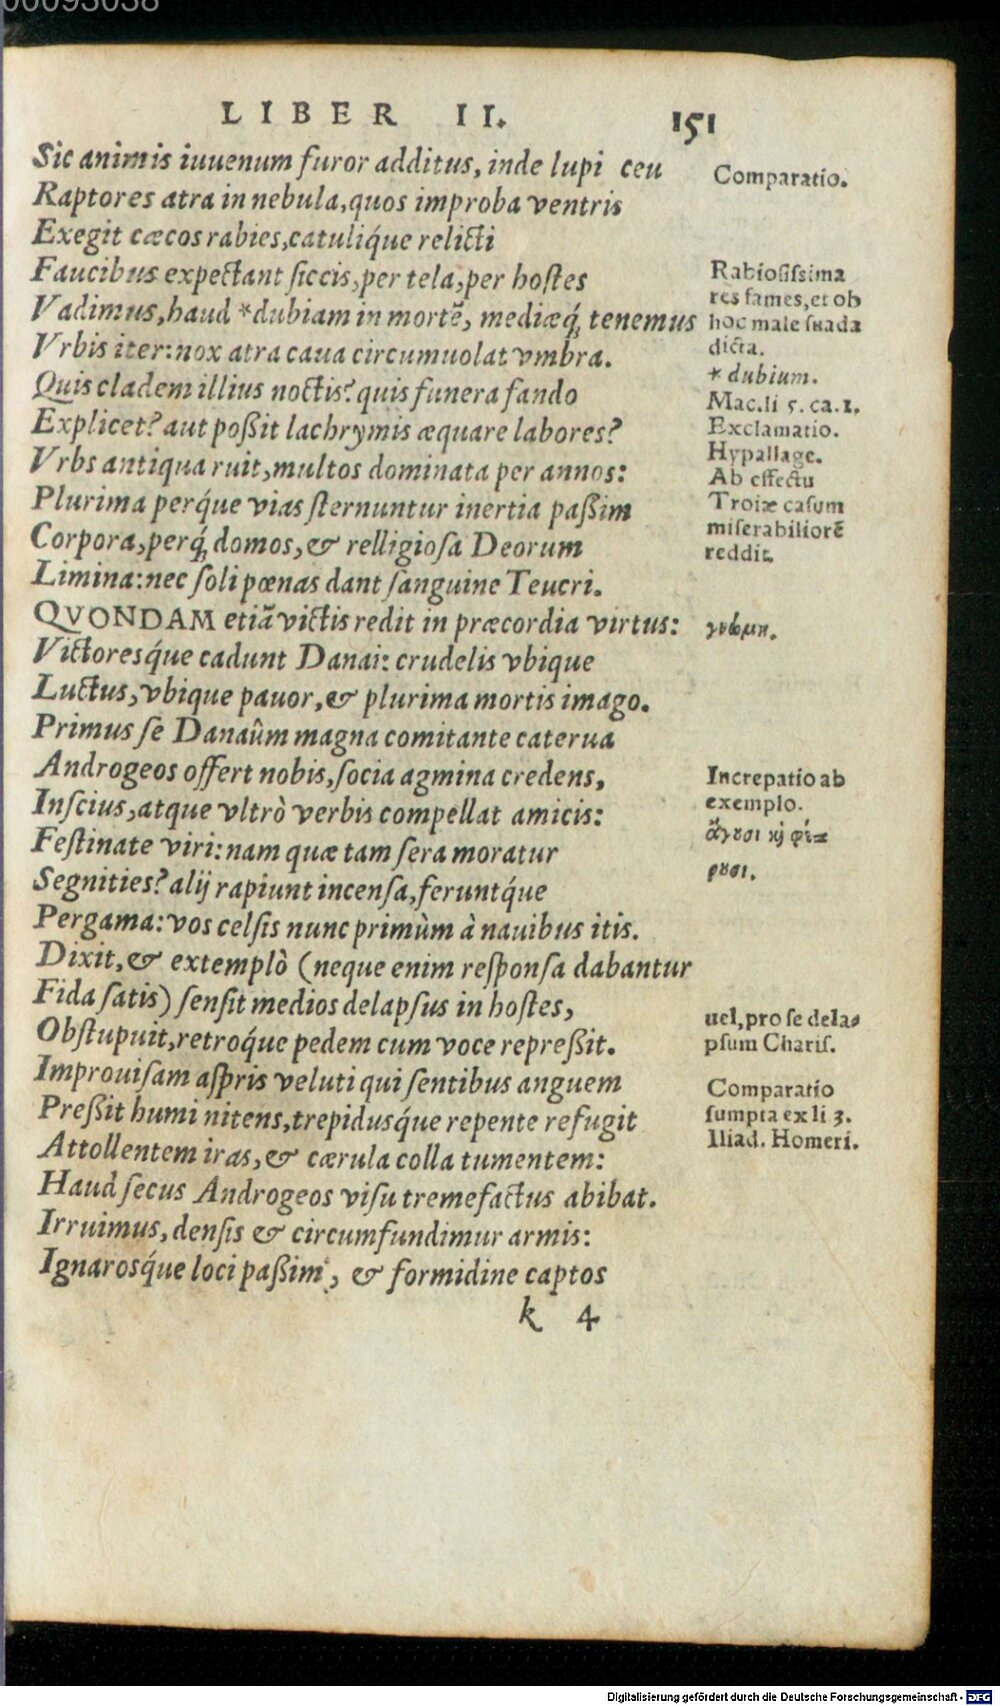 00093038
LIBER II. 151
Sic animis iuuenum furor additus, inde lupi ceu
Raptores atra in nebula, quos improba ventris
Exegit cæcos rabies, catuliq́ue relicti
Faucibus expectant siccis, per tela, per hostes
Vadimus, haud *dubiam in mortē, mediæq́; tenemus
Vrbis iter: nox atra caua circumuolat vmbra.
Quis cladem illius noctis? quis funera fando
Explicet? aut poßit lachrymis æquare labores?
Vrbs antiqua ruit, multos dominata per annos:
Plurima perq́ue vias sternuntur inertia paßim
Corpora, perq́; domos, & relligiosa Deorum
Limina: nec soli pœnas dant sanguine Teucri.
QVONDAM etiā victis redit in præcordia virtus:
Victoresq́ue cadunt Danai: crudelis vbique
Luctus, vbique pauor, & plurima mortis imago.
Primus se Danaûm magna comitante caterua
Androgeos offert nobis, socia agmina credens,
Inscius, atque vltrò verbis compellat amicis:
Festinate viri: nam quæ tam sera moratur
Segnities? alij rapiunt incensa, feruntq́ue
Pergama: vos celsis nunc primùm à nauibus itis.
Dixit, & extemplò (neque enim responsa dabantur
Fida satis) sensit medios delapsus in hostes,
Obstupuit, retroq́ue pedem cum voce repreßit.
Improuisam aspris veluti qui sentibus anguem
Preßit humi nitens, trepidusq́ue repente refugit
Attollentem iras, & cærula colla tumentem:
Haud secus Androgeos visu tremefactus abibat.
Irruimus, densis & circumfundimur armis:
Ignarosq́ue loci paßim, & formidine captos
k 4
Comparatio.
Rabiosissima
res fames, et ob
hoc male suada
dicta.
* dubium.
Mac. li 5. ca. 1.
Exclamatio.
Hypallage.
Ab effectu
Troiæ casum
miserabiliorē
reddit.
γνώμη.
Increpatio ab
exemplo.
ἄγουσι καὶ φέ=
ρουσι.
uel, pro se dela=
psum Charis.
Comparatio
sumpta ex li 3.
Iliad. Homeri.
Digitalisierung gefördert durch die Deutsche Forschungsgemeinschaft - DFG